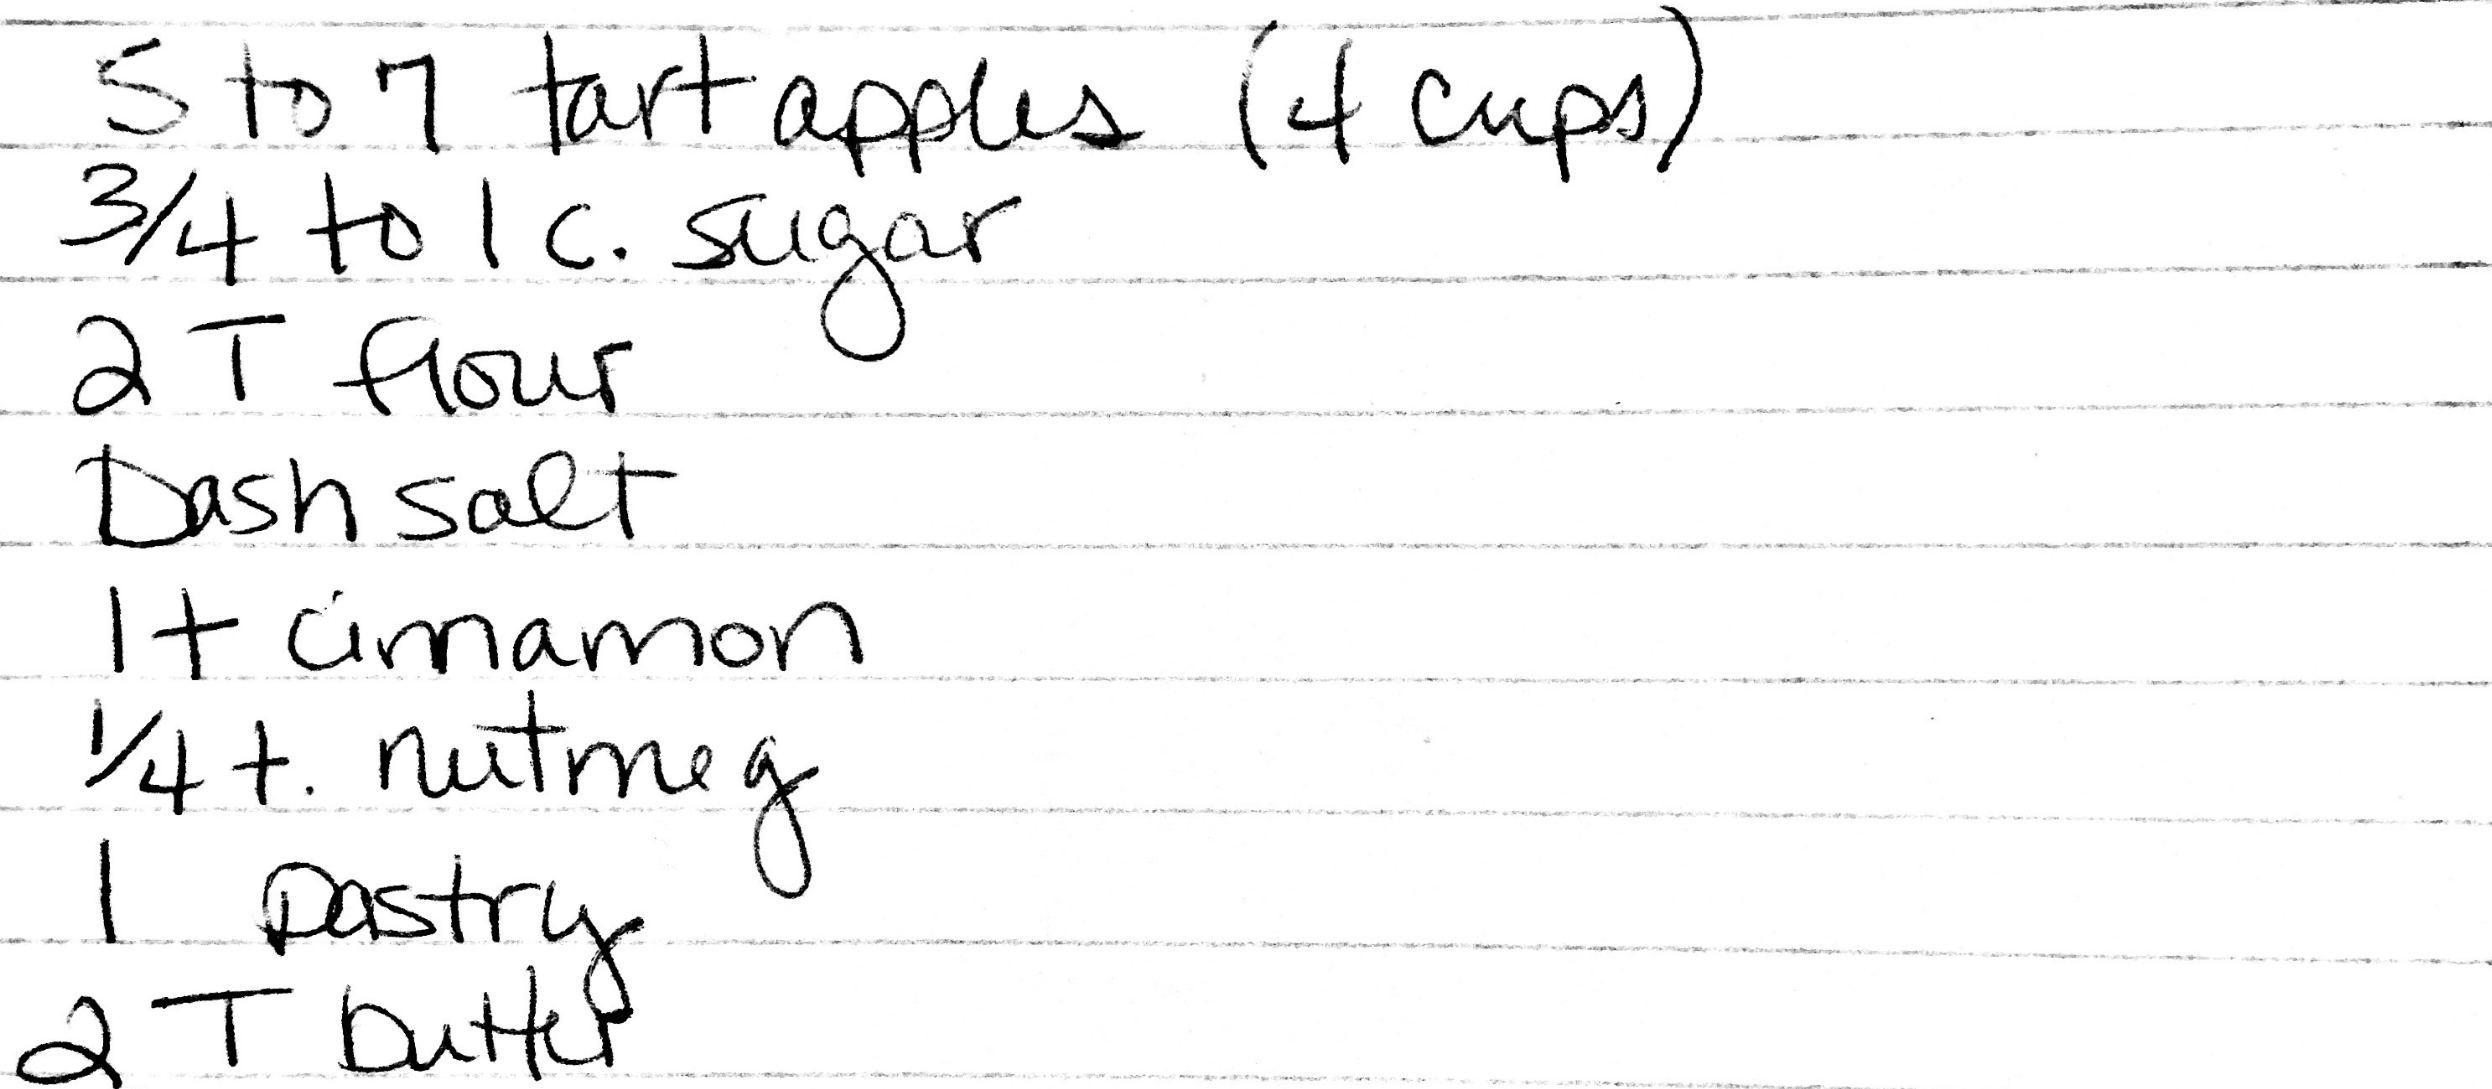 5 to 7 tart apples (4 cups)
3/4 to 1 c. sugar
2 T flour
Dash salt
1 t cinnamon
1/4 t. nutmeg
1 pastry
2 T butter